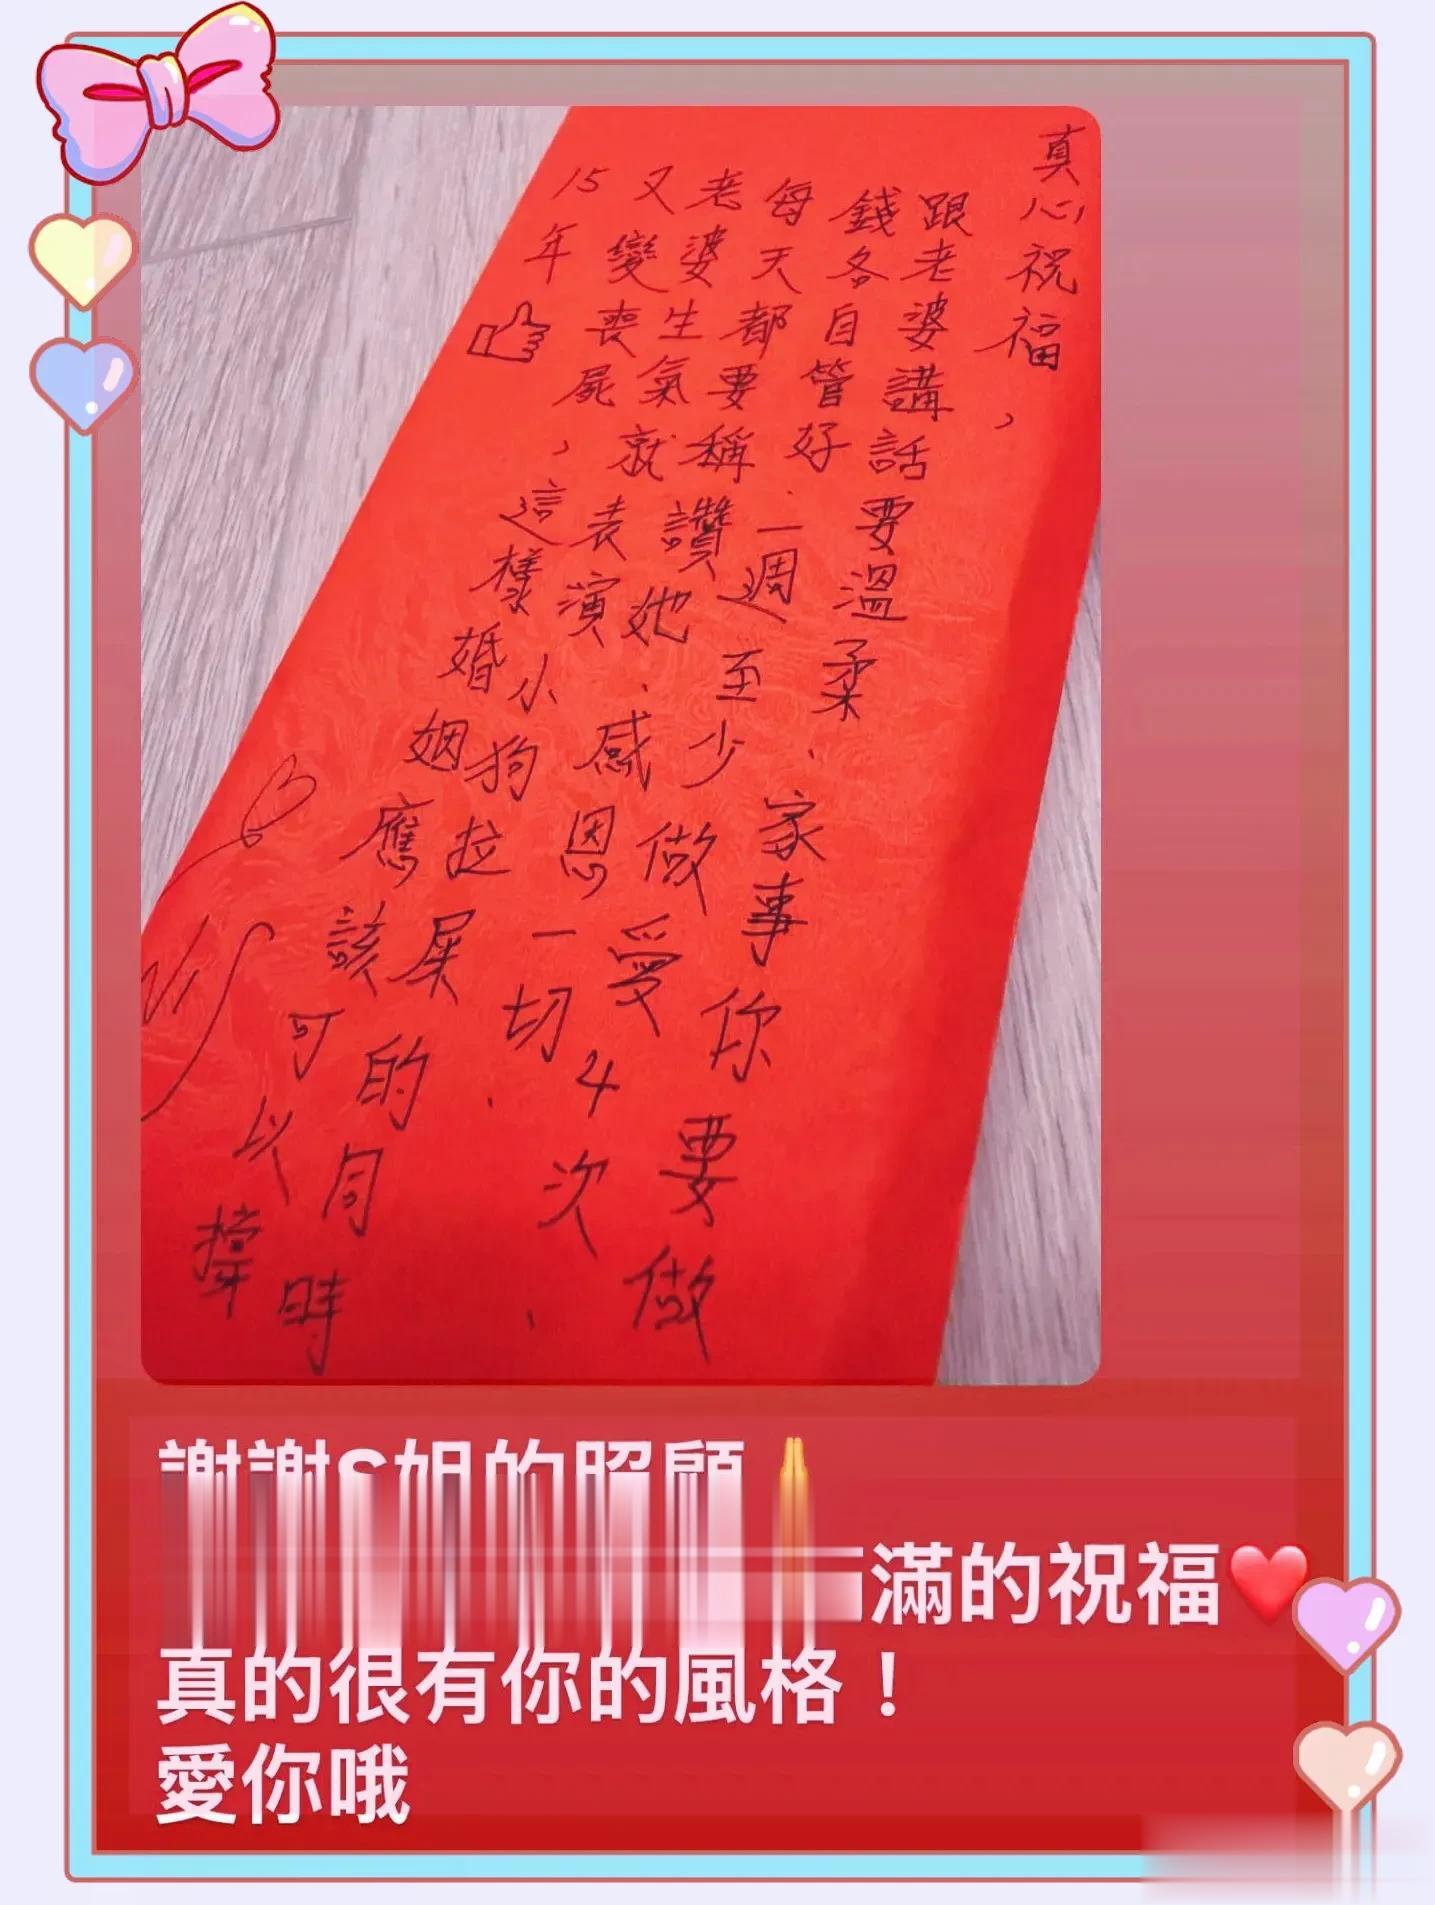 真心祝福，
跟老婆講話要溫柔、家事你要做
錢各自管好、一週至少做愛4次、
每天都要稱讚她、感恩一切、
老婆生氣就表演小狗拉屎的同時
又變喪屍，這樣婚姻應該可以撐
15年
謝謝S姐的照顧
滿的祝福❤️
真的很有你的風格！
愛你哦